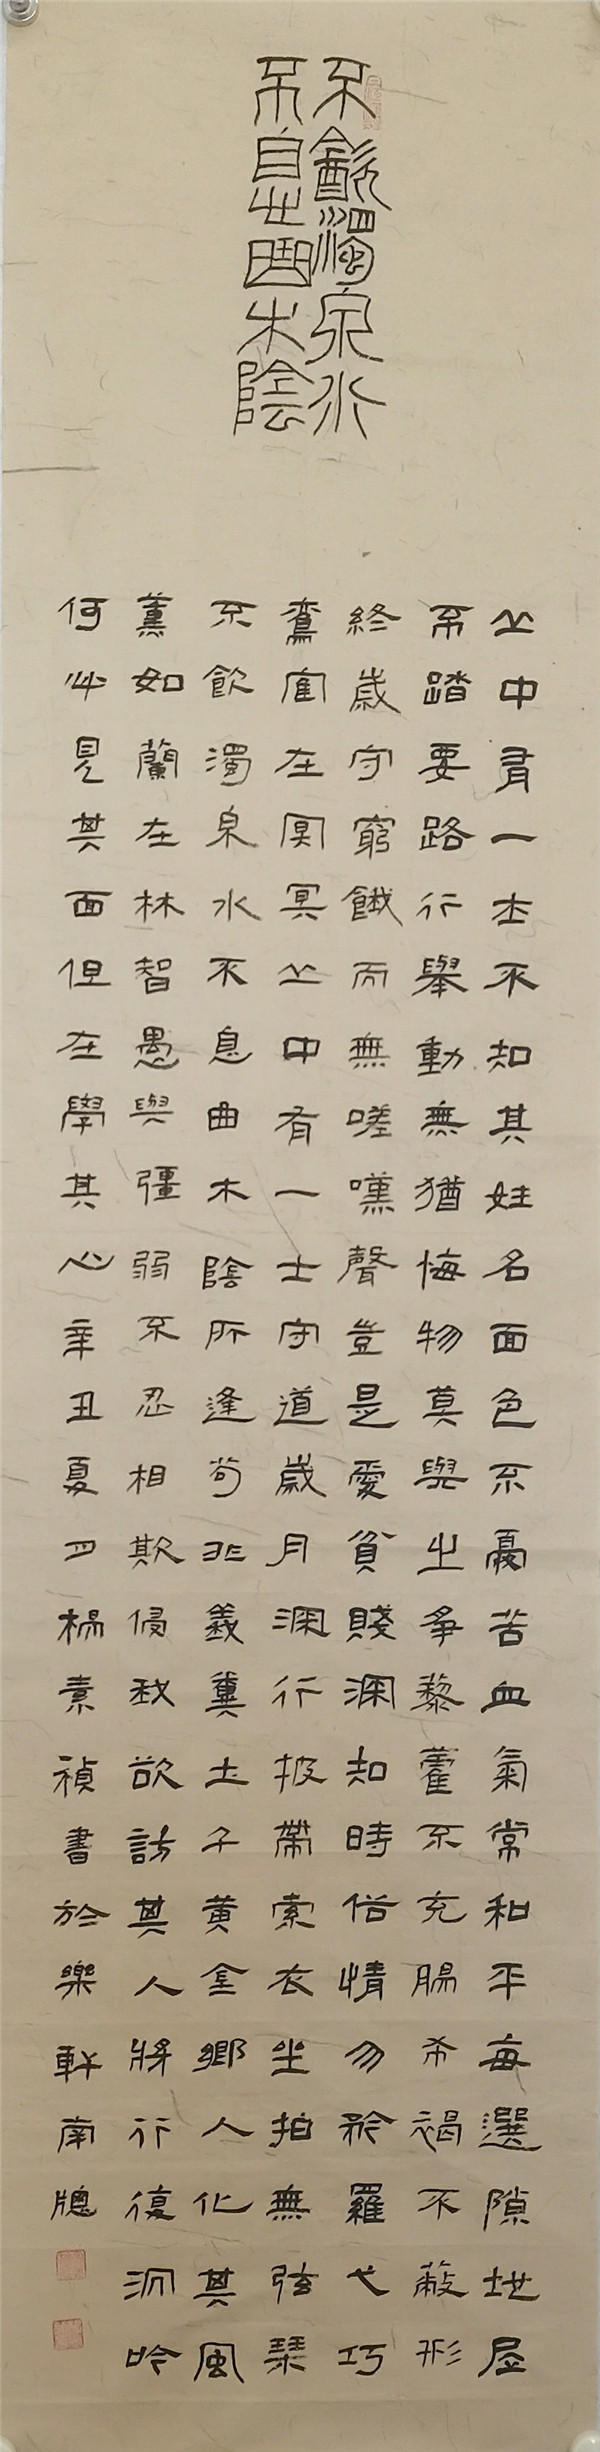 不飲濁泉水
不息曲木陰
丘中有一士不知其姓名面色不憂苦血氣常和平每選隙地居
不踏要路行舉動無猶悔物莫與之爭藜藿不充腸布褐不蔽形
終歲守窮餓而無嗟嘆聲豈是愛貧賤深知時俗情勿矜羅弋巧
鸞鶴在冥冥丘中有一士守道歲月深行披帶索衣坐拍無弦琴
不飲濁泉水不息曲木陰所逢苟非義糞土千黃金鄉人化其風
薰如蘭在林智愚與彊弱不忍相欺侵我欲訪其人將行復沉吟
何必見其面但在學其心辛丑夏月楊素禎書於樂軒南牕